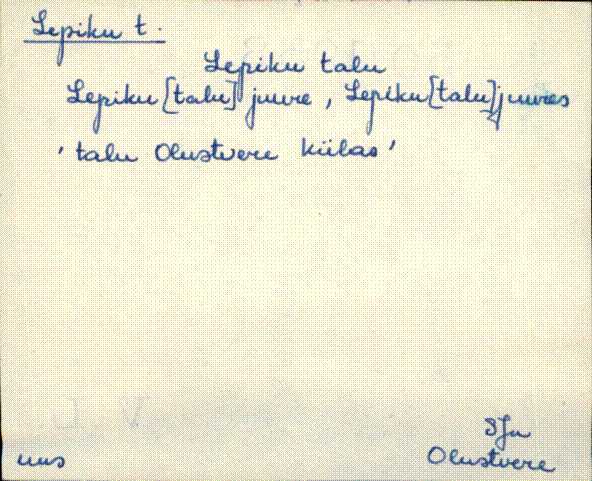 Lepiku t.
Lepiku talu
Lepiku [talu] juure, Lepiku [talu] juures
' talu Olustvere külas '
SJn
Olustvere
uus